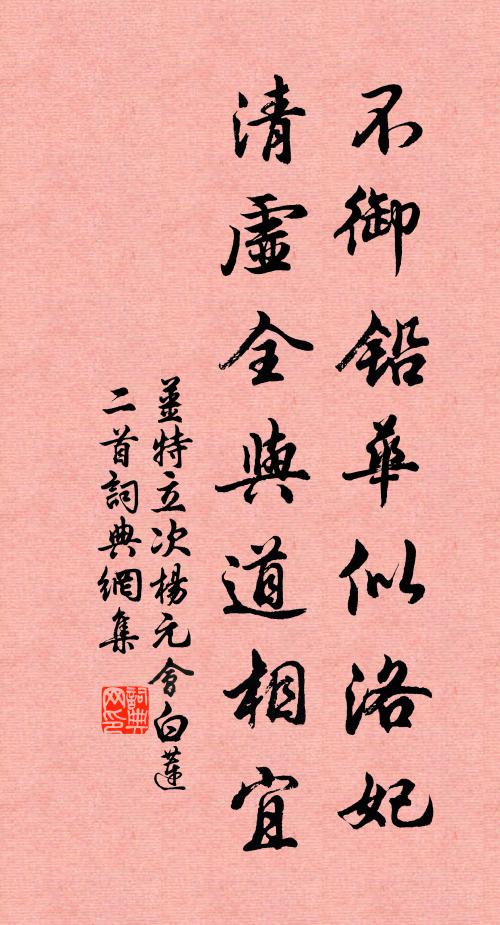 不御鉛華似洛妃
清虛全與道相宜
姜特立次楊元會白蓮
二首詞典網集
詞典
网印